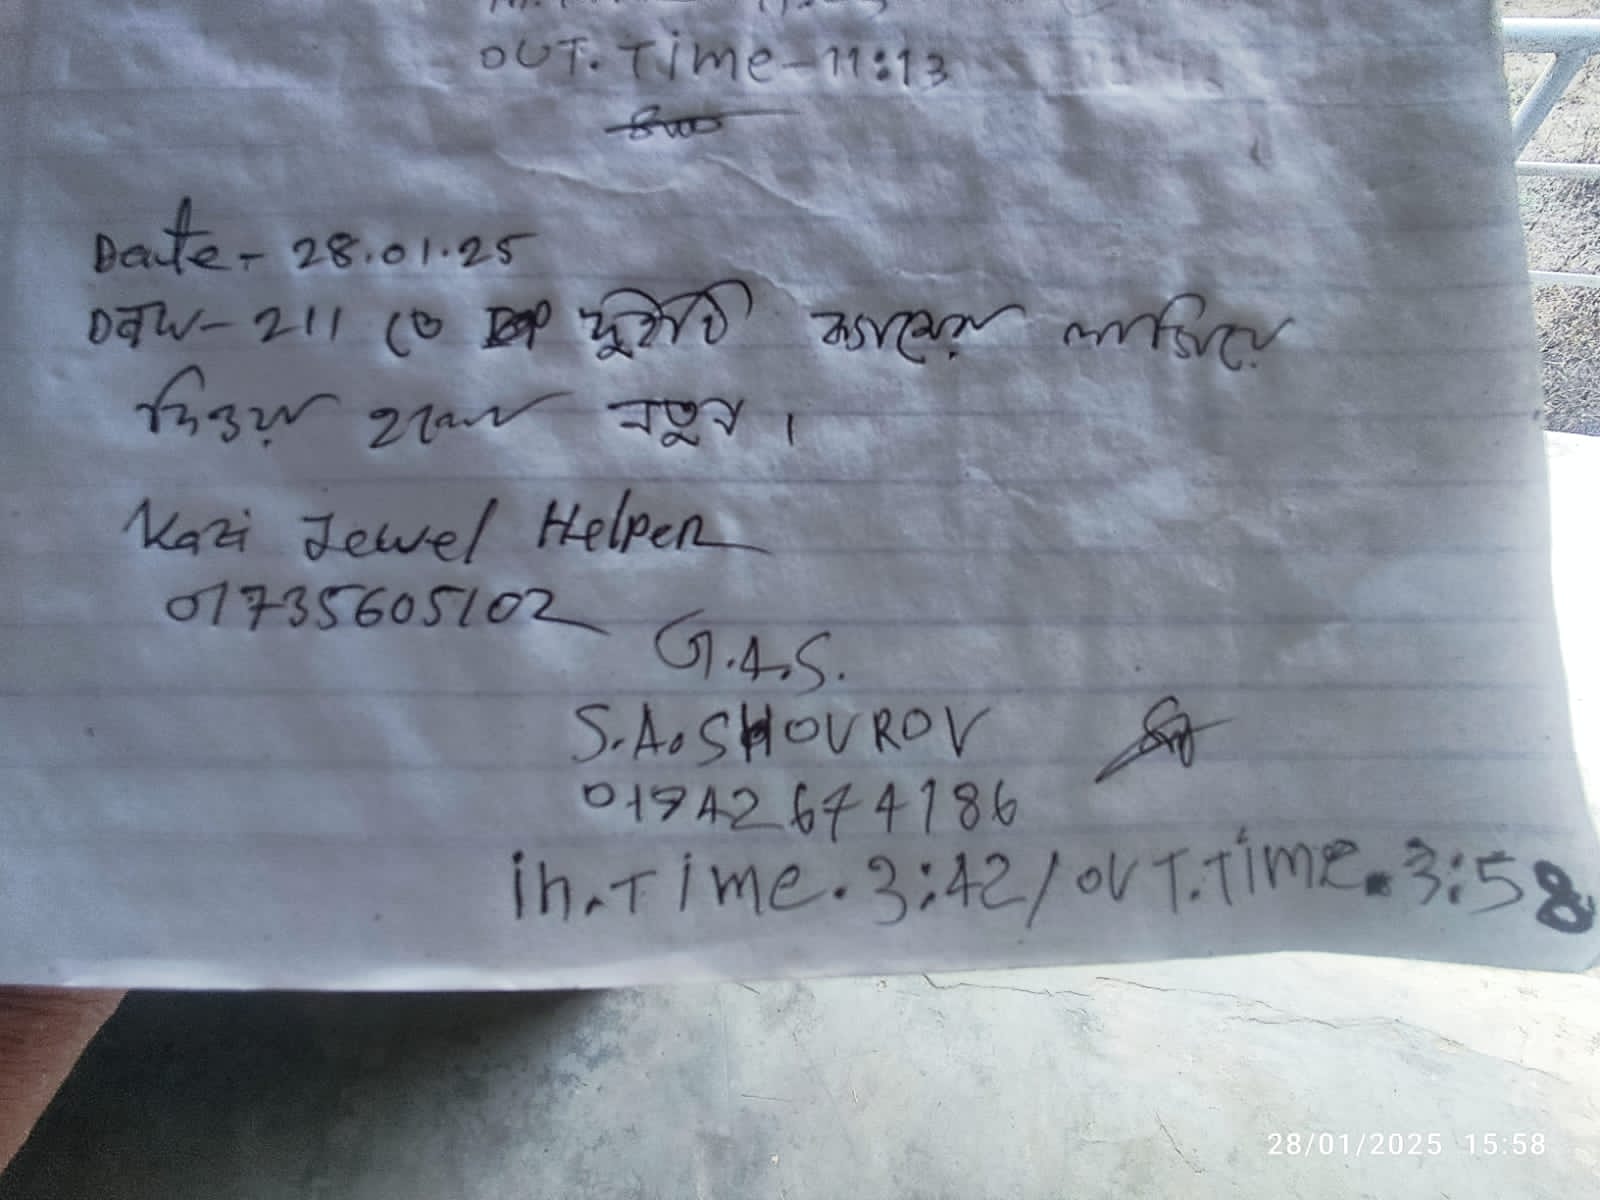 OUT. Time-11:13
Date- 28.01.25
211 তে দুইটি ক্যামেরা লাগিয়ে
দিওয়া হলো নতুন।
Kazi Jewel Helper
01735605102
G.A.S.
S.A. SHOVROV
01742644186
in.Time. 3:42/ OUT.Time. 3:58
28/01/2025 15:58